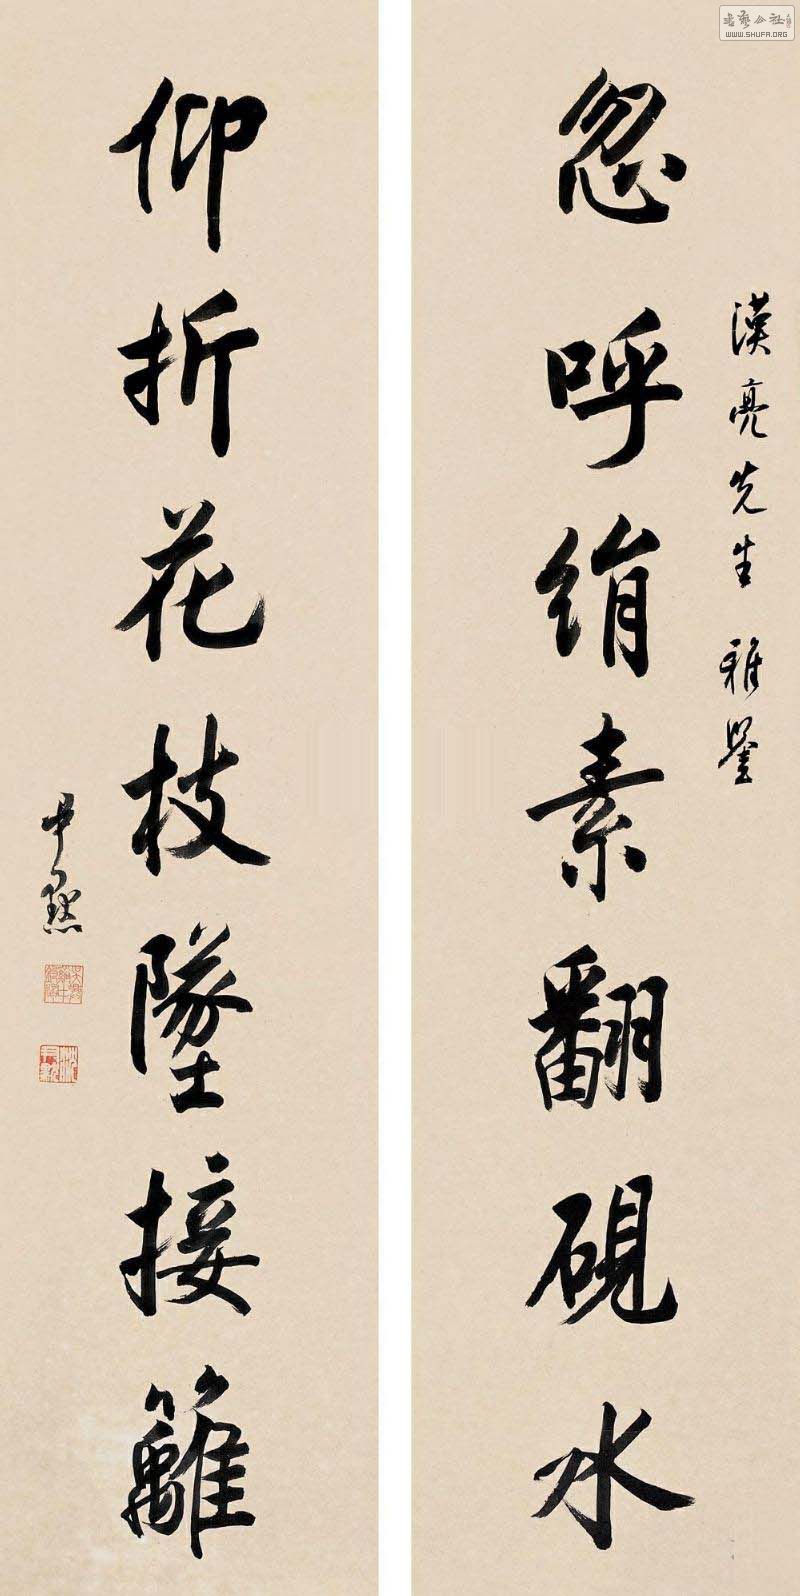 書藝公社
WWW.SHUFA.ORG
漢亮先生雅鑒
忽呼絹素翻硯水
仰折花枝墜接籬
尹默